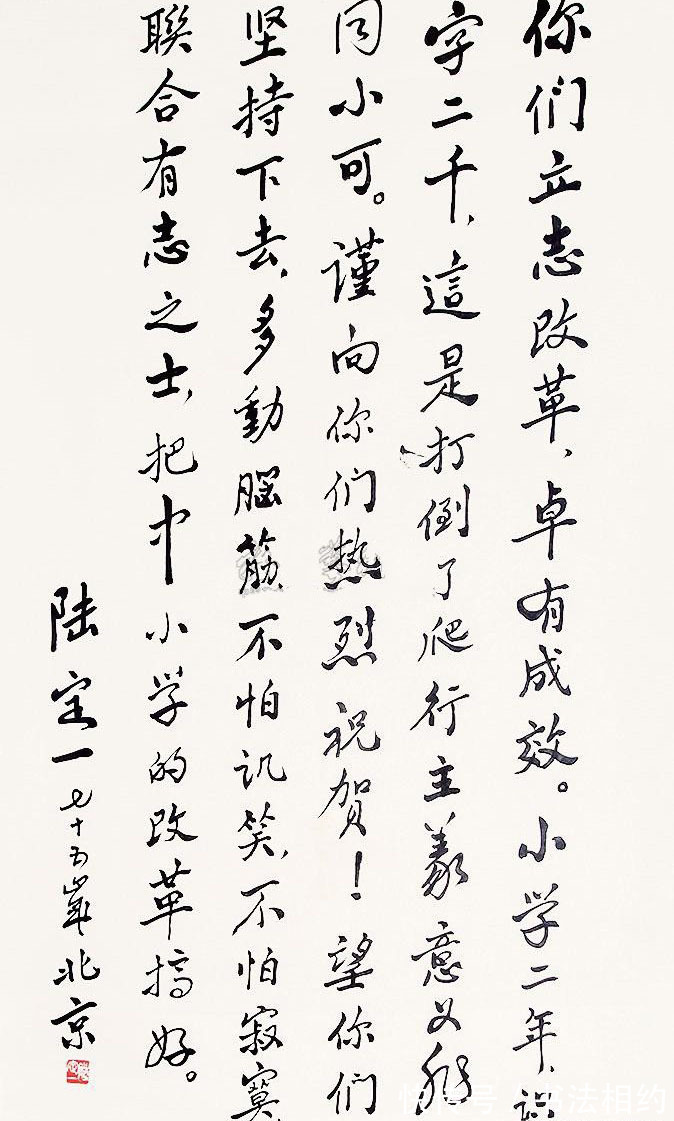 你们立志改革，卓有成效。小学二年，识
字二千，這是打倒了爬行主義，意义非
同小可。谨向你们热烈祝贺！望你们
坚持下去，多動腦筋，不怕讥笑，不怕寂寞，
聯合有志之士，把中小学的改革搞好。
陆定一 七十五歲 北京
快传号 / 书法相约